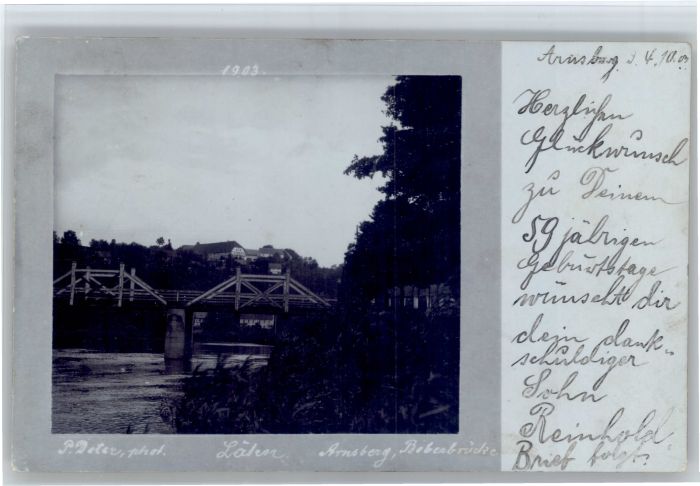 1903.
P. Deter, phot. Lähn. Arnsberg, Boberbrücke
Arnsberg, d. 4.10.03
Herzlichen
Glückwunsch
zu Deinem
59 jährigen
Geburtstage
wünscht dir
dein dank-
schuldiger
Sohn
Reinhold.
Brief folgt.